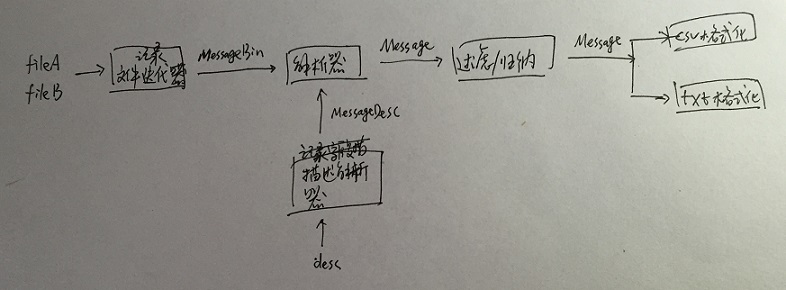 fileA
fileB
记录
文件迭代器
MessageBin
解析器
Message
过虑/归纳
Message
csv格式化
txt格式化
MessageDesc
描述解析
器
desc